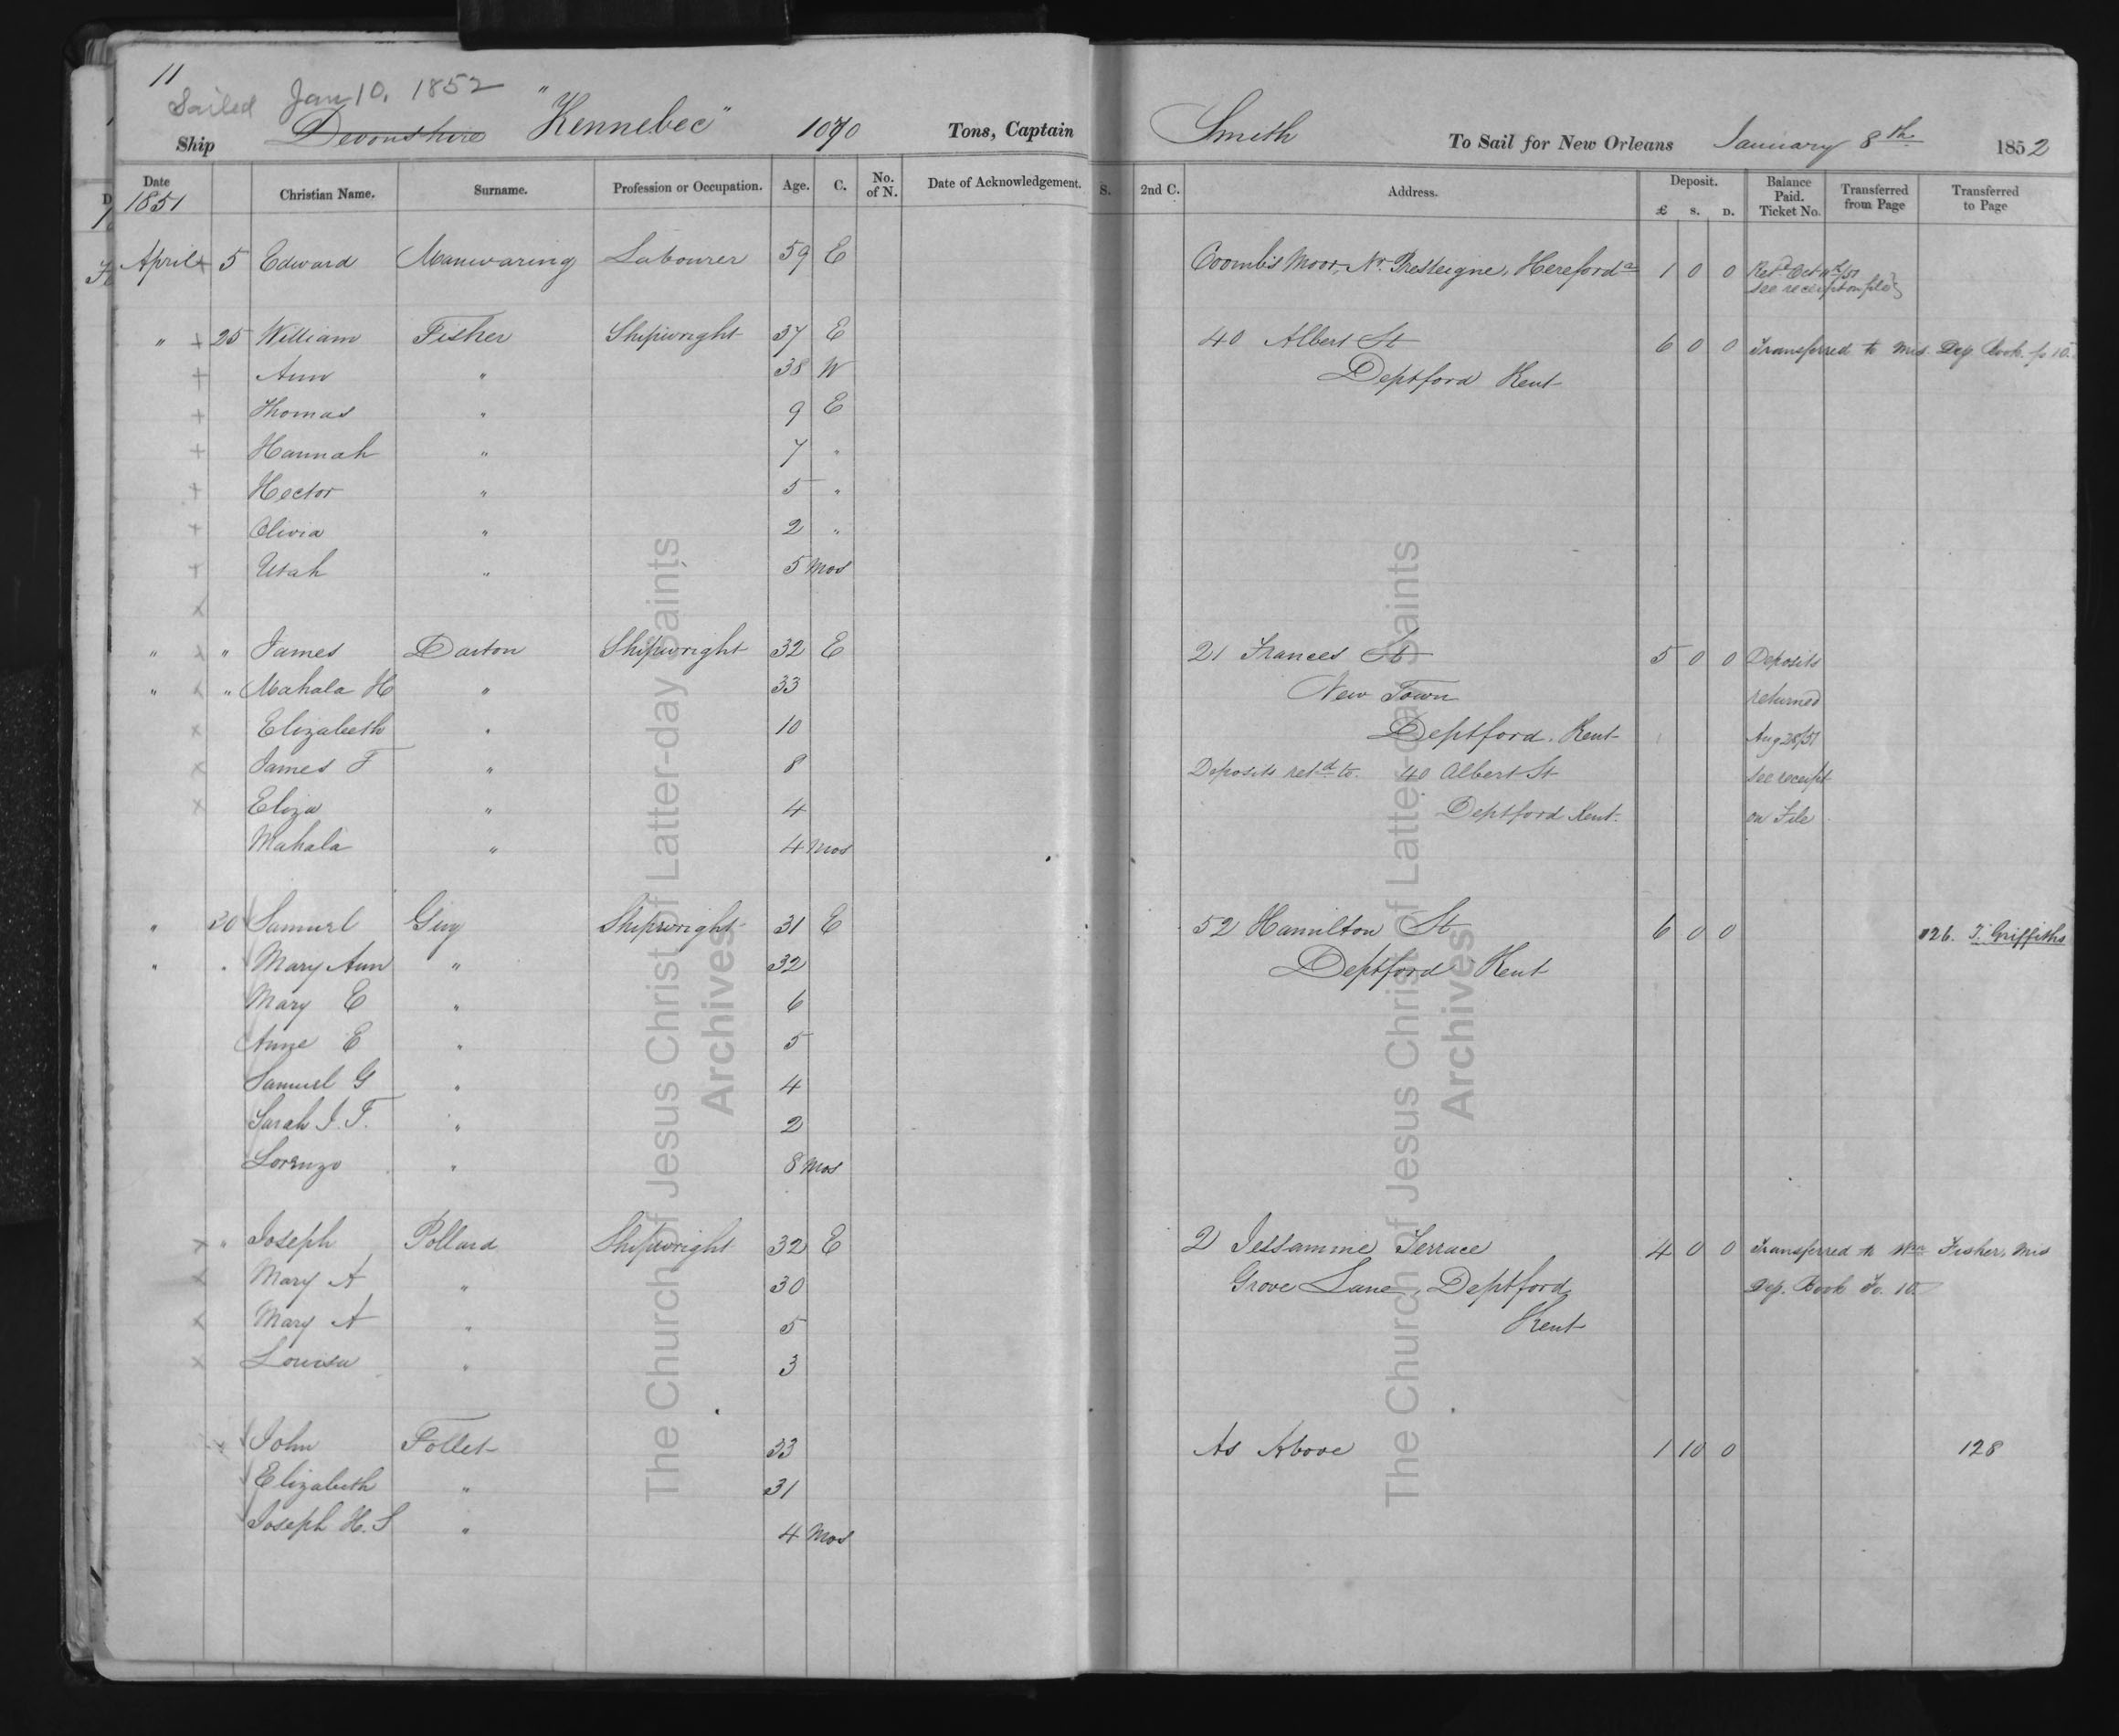 11
Sailed Jan 10, 1852
Ship Devonshire "Kennebec" 1070 Tons, Captain Smith To Sail for New Orleans January 8th 1852
Date Christian Name. Surname. Profession or Occupation. Age. C. No. of N. Date of Acknowledgement. S. 2nd C. Address. Deposit. £ S. D. Balance Paid. Ticket No. Transferred from Page Transferred to Page
1851
April + 5 Edward Manwaring Labourer 59 E Coombs Moor, Nr. Presteigne, Hereford 1 0 0 Retd Oct 11th/51
see receipt on file
" + 25 William Fisher Shipwright 37 E 40 Albert St 6 0 0 Transferred to Mis. Dep. Book fo 10.
+ Ann " 38 W Deptford Kent
+ Thomas " 9 E
+ Hannah " 7 "
+ Hector " 5 "
+ Olivia " 2 "
+ Utah " 5 Mos
x
" x " James Darton Shipwright 32 E 21 Frances St 5 0 0 Deposits
" x " Mahala H " 33 New Town returned
x Elizabeth " 10 Deptford. Kent Aug 28/51
x James F " 8 Deposits retd to. 40 Albert St see receipt
x Eliza " 4 Deptford Kent. on File
Mahala " 4 Mos
" 30 Samuel Guy Shipwright 31 E 52 Hamilton St 6 0 0 126. T. Griffiths
" " Mary Ann " 32 Deptford Kent
Mary E " 6
Anne E " 5
Samuel G " 4
Sarah J. T. " 2
Lorenzo " 8 Mos
x " Joseph Pollard Shipwright 32 E 2 Jessamine Terrace 4 0 0 Transferred to Wm Fisher, Mis
x Mary A " 30 Grove Lane, Deptford Dep. Book Fo. 10
x Mary A " 5 Kent
x Louisa " 3
John Follet 33 As Above 1 10 0 128
Elizabeth " 31
Joseph H. S " 4 Mos
The Church of Jesus Christ of Latter-day Saints
Archives
The Church of Jesus Christ of Latter-day Saints
Archives